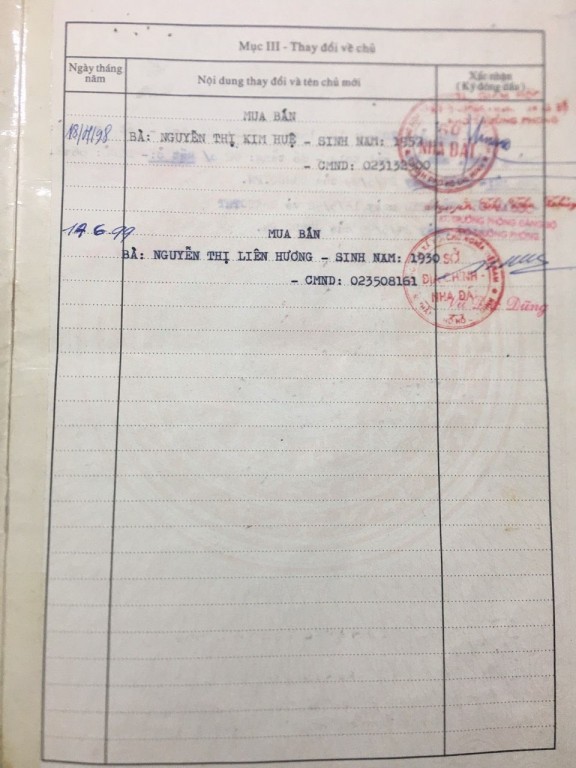 Mục III - Thay đổi về chủ
Ngày tháng năm
Nội dung thay đổi và tên chủ mới
Xác nhận
(Ký đóng dấu)
MUA BÁN
BÀ: NGUYỄN THỊ KIM HUỆ - SINH NAM: 1957
- CMND: 023132900
NHÀ ĐẤT
14.6.99
MUA BÁN
BÀ: NGUYỄN THỊ LIÊN HƯƠNG - SINH NAM: 1930
- CMND: 023508161
SỞ
ĐỊA CHÍNH -
NHÀ ĐẤT
Dũng